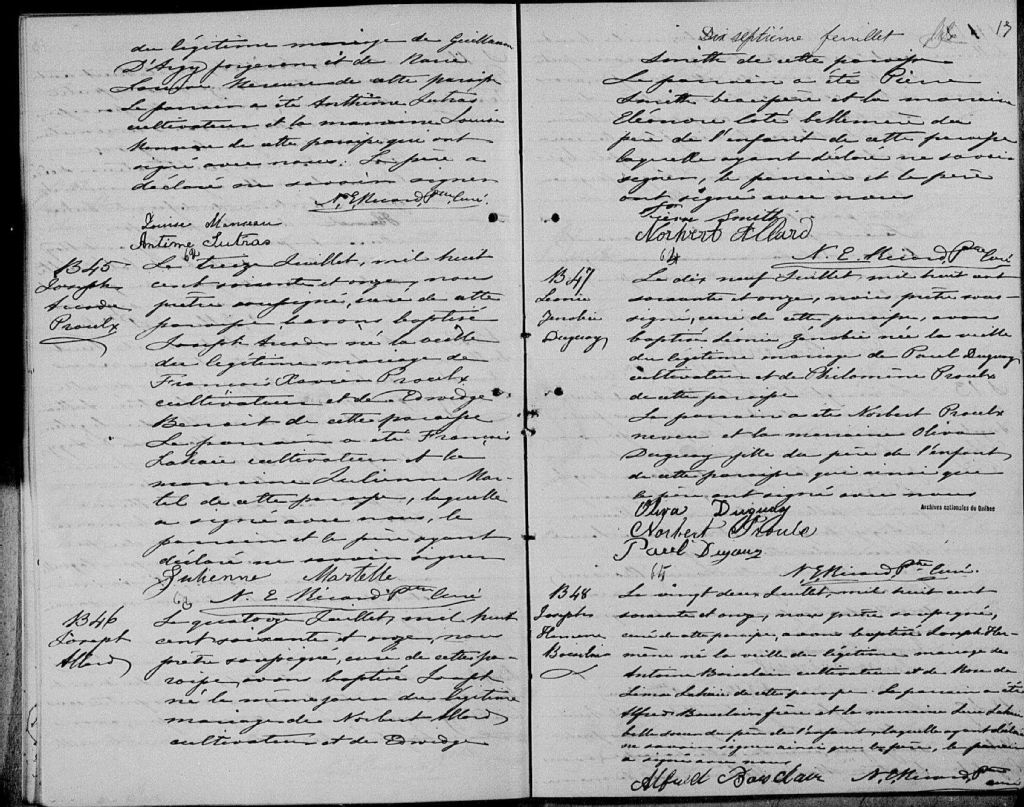 du légitime mariage de Guillaume
D'Argy forgeron et de Marie
Louise Merceure de cette paroisse
Le parrain a été Anthime Jutras
cultivateur et la marraine Louise
de cette paroisse qui ont
signé avec nous. Le père a
déclaré ne savoir signer
N. E. Ricard Ptre Curé.
Louise
Antime Jutras
62
B45
Joseph
Proulx
Le treize Juillet, mil huit
cent soixante et onze, nous
prêtre soussigné, curé de cette
paroisse avons baptisé
Joseph né la veille
du légitime mariage de
François Xavier Proulx
cultivateur et de Edwidge
Benoit de cette paroisse
Le parrain a été François
Lahaie cultivateur et la
marraine Julienne Mar-
tel de cette paroisse, laquelle
a signé avec nous, le
parrain et le père ayant
déclaré ne savoir signer
Julienne Martelle
63
N. E. Ricard Ptre Curé
B46
Joseph
Allard
Le quatorze Juillet, mil huit
cent soixante et onze, nous
prêtre soussigné, curé de cette pa-
roisse, avons baptisé Joseph
né le même jour du légitime
mariage de Norbert Allard
cultivateur et de Edwidge
Dix septième feuillet 17
Smith de cette paroisse
Le parrain a été Pierre
Smith beau père et la marraine
Eléonore Coté belle mère du
père de l'enfant de cette paroisse
laquelle ayant déclaré ne savoir
signer, le parrain et le père
ont signé avec nous
Pierre Smith
Norbert Allard
N. E. Ricard Ptre Curé
64
B47
Léonie
Duguay
Le dix neuf Juillet, mil huit cent
soixante et onze, nous prêtre sous-
signé, curé de cette paroisse, avons
baptisé Léonie née la veille
du légitime mariage de Paul Duguay
cultivateur et de Philomène Proulx
de cette paroisse
Le parrain a été Norbert Proulx
neveu et la marraine Oliva
Duguay fille du père de l'enfant
de cette paroisse qui ainsi que
le père ont signé avec nous
Oliva Duguay
Norbert Proule
Paul
Archives nationales du Québec
N. E. Ricard Ptre Curé.
B48
Joseph
Le vingt deux Juillet, mil huit cent
soixante et onze, nous prêtre soussigné,
curé de cette paroisse, avons baptisé Joseph Her-
né la veille du légitime mariage de
Antoine cultivateur et de Rose de
Lima Lahaie de cette paroisse Le parrain a été
Alfred frère et la marraine
belle soeur du père de l'enfant, laquelle ayant déclaré
ne savoir signer ainsi que le père, le parrain
a signé avec nous
Alfred
N. E. Ricard Ptre
curé